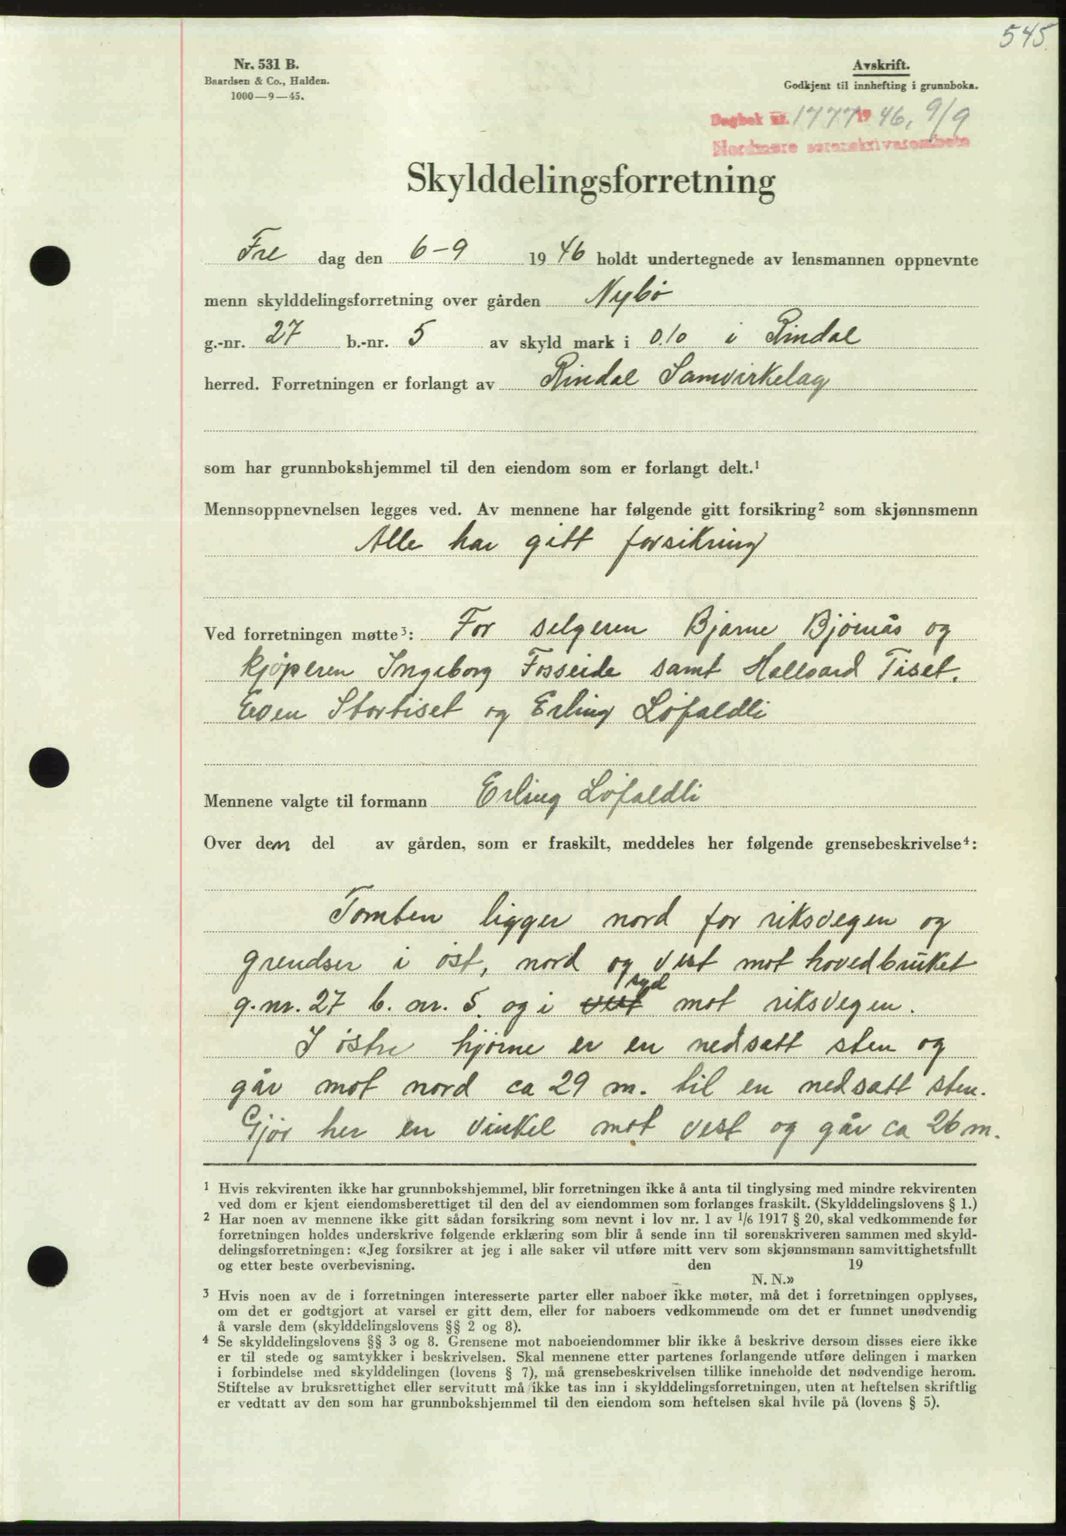 545
Nr. 531 B.
Baardsen & Co., Halden.
1000—9—45.
Avskrift.
Godkjent til innhefting i grunnboka.
Dagbok nr. 1777 19 46, 9/9
Nordmøre sorenskriverembete
Skylddelingsforretning
Fre dag den 6-9 19 46 holdt undertegnede av lensmannen oppnevnte
menn skylddelingsforretning over gården Nybö
g.-nr. 27 b.-nr. 5 av skyld mark i 0.10 i Rindal
herred. Forretningen er forlangt av Rindal Samvirkelag
som har grunnbokshjemmel til den eiendom som er forlangt delt.¹
Mennsoppnevnelsen legges ved. Av mennene har følgende gitt forsikring² som skjønnsmenn
Alle har gitt forsikring
Ved forretningen møtte³: For selgeren Bjarne Bjørnås og
kjøperen Ingeborg Fosseide samt Hallvard Tiset.
Even Stortiset og Erling Löfaldli
Mennene valgte til formann Erling Löfaldli
Over den del av gården, som er fraskilt, meddeles her følgende grensebeskrivelse⁴:
Tomten ligger nord for riksvegen og
grendser i öst, nord og vest mot hovedbruket
g.nr. 27 b. nr. 5. og i vest syd mot riksvegen.
I östre hjörne er en nedsatt sten og
går mot nord ca 29 m. til en nedsatt sten.
Gjör her en vinkel mot vest og går ca 26 m.
¹ Hvis rekvirenten ikke har grunnbokshjemmel, blir forretningen ikke å anta til tinglysing med mindre rekvirenten
ved dom er kjent eiendomsberettiget til den del av eiendommen som forlanges fraskilt. (Skylddelingslovens § 1.)
² Har noen av mennene ikke gitt sådan forsikring som nevnt i lov nr. 1 av 1/6 1917 § 20, skal vedkommende før
forretningen holdes underskrive følgende erklæring som blir å sende inn til sorenskriveren sammen med skyld-
delingsforretningen: «Jeg forsikrer at jeg i alle saker vil utføre mitt verv som skjønnsmann samvittighetsfullt
og etter beste overbevisning. den 19
N. N.»
³ Hvis noen av de i forretningen interesserte parter eller naboer ikke møter, må det i forretningen opplyses,
om det er godtgjort at varsel er gitt dem, eller for naboers vedkommende om det er funnet unødvendig
å varsle dem (skylddelingslovens §§ 2 og 8).
⁴ Se skylddelingslovens §§ 3 og 8. Grensene mot naboeiendommer blir ikke å beskrive dersom disses eiere ikke
er til stede og samtykker i beskrivelsen. Skal mennene etter partenes forlangende utføre delingen i marken
i forbindelse med skylddelingen (lovens § 7), må grensebeskrivelsen tillike inneholde det nødvendige herom.
Stiftelse av bruksrettighet eller servitutt må ikke tas inn i skylddelingsforretningen, uten at heftelsen skriftlig
er vedtatt av den som har grunnbokshjemmel til den eiendom som heftelsen skal hvile på (lovens § 5).